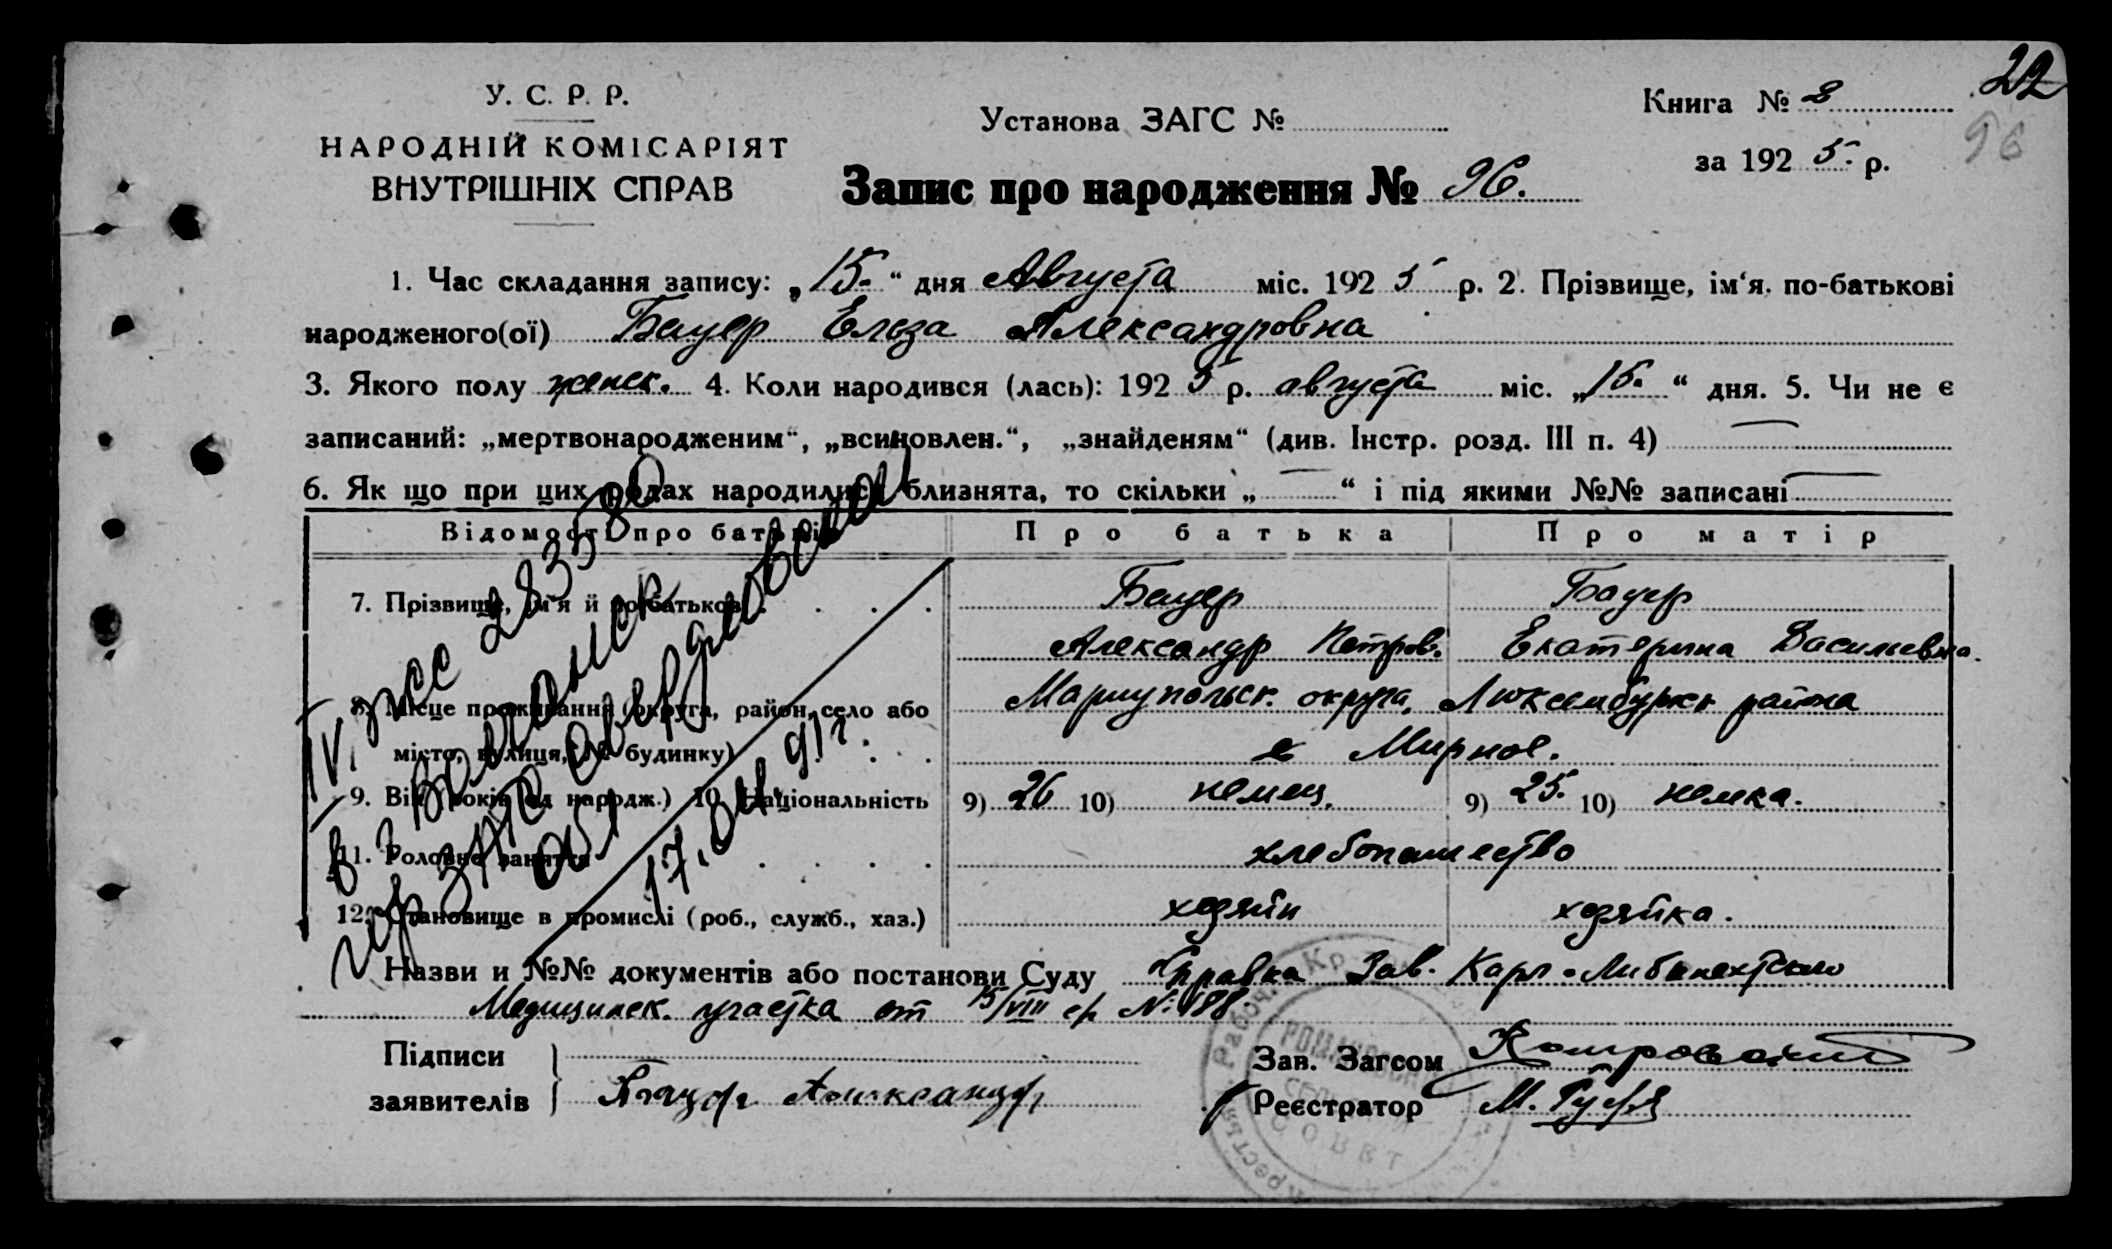 22
У. С. Р. Р.
НАРОДНІЙ КОМІСАРІЯТ
ВНУТРІШНІХ СПРАВ
Установа ЗАГС №
Книга № 2
96
за 192 5. р.
Запис про народження № 96.
1. Час складання запису: „ 15. “ дня Августа міс. 192 5 р. 2. Прізвище, ім‘я. по-батькові
народженого(ої) Бауер Ельза Александровна
3. Якого полу женск. 4. Коли народився (лась): 192 5 р. августа міс. „ 15. “ дня. 5. Чи не є
записаний: „мертвонародженим“, „всиновлен.“, „знайденям“ (див. Інстр. розд. III п. 4)
6. Як що при цих родах народилися близнята, то скільки „ “ і під якими №№ записані
Відомості про батьків Про батька Про матір
7. Прізвище, ім‘я й по-батькові . . . . Бауер Бауер
Александр Петров. Екатерина Васильевна.
8. Місце проживання (округа, район, село або Мариупольск. округа, Люксембургск района
місто, вулиця, № будинку) . . . с Мирное.
9. Вік (років од народж.) 10. Національність 9) 26 10) немец. 9) 25. 10) немка.
11. Головне заняття . . . . хлебопашество
12. Становище в промислі (роб., служб., хаз.) хозяйн хозяйка.
IV. ЖСС 283580
в г. Волчанск
гор ЗАГС Свердловской
обл
17.04.91г.
Назви и №№ документів або постанови Суду Справка Зав. Карл-Либкнехтского
Медицинск. участка от 15/VIII с/г № 188
Підписи
заявителів
Бауер Александр
Зав. Загсом
Реєстратор